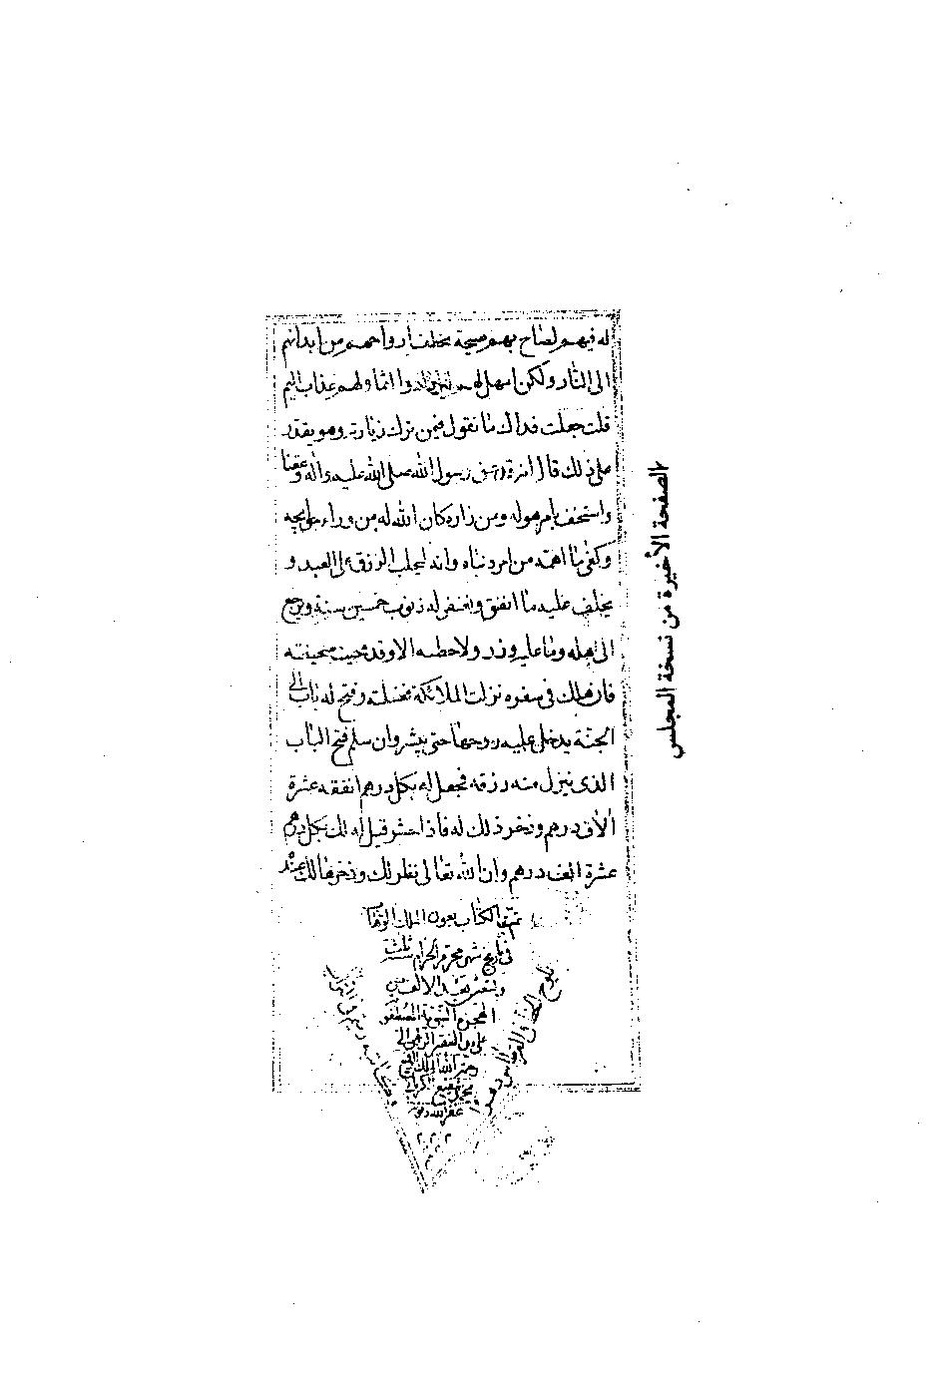 له فيهم لصاح بهم صيحة يخلف ارواحهم من ابدانهم
الى النار ولكن امهل لهم ليزدادوا اثما ولهم عذاب اليم
قلت جعلت فداك ما تقول فيمن ترك زيارته وهو يقدر
على ذلك قال انه قد عق رسول الله صلى الله عليه واله وعقنا
واستخف بامر هو له ومن زاره كان الله له من وراء حوايجه
وكفى ما اهمه من امر دنياه وانه ليجلب الرزق على العبد و
يخلف عليه ما انفق ويغفر له ذنوب خمسين سنة ويرجع
الى اهله وما عليه وزر ولا خطيه الا وقد محيت من صحيفته
فان هلك في سفره نزلت الملائكة فغسلته وفتح له باب الى
الجنة يدخل عليه روحها حتى ينشر وان سلم فتح الباب
الذى ينزل منه رزقه فجعل له بكل درهم انفقه عشرة
الاف درهم وذخر ذلك له فاذا حشر قيل له لك بكل درهم
عشرة الف درهم وان الله تعالى نظر لك وذخرها لك عنده
تم الكتاب بعون الملك الوهاب
فى تاريخ شهر محرم الحرام ثلث
بعد الالف من
الهجرة النبوية المصطفوية
على يد الفقير الى
رحمة الله الملك
محمد شفيع
غفر الله
يلوح الخط في القرطاس دهرا
وكاتبه رميم في التراب
الصفحة الأخيرة من نسخة المجلس